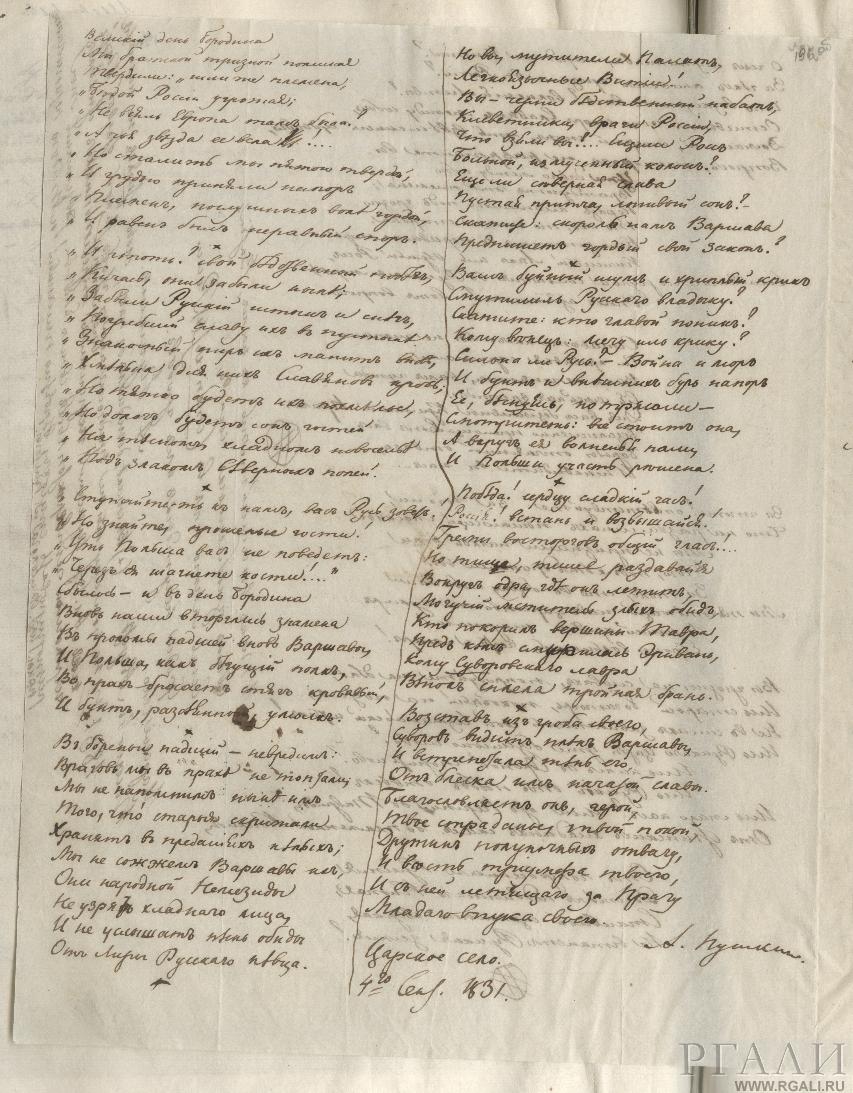 Великій день Бородина
Мы братской тризной поминая
Твердили: „шли же племена,
„Бѣдой Россіи угрожая;
„Не вся ль Европа тутъ была?
„А чья звѣзда ее вела!!....
„Но стали жъ мы пятою твердой,
„И грудью приняли напоръ
„Племенъ, послушныхъ волѣ гордой,
„И равенъ былъ неравный споръ.
„И что жъ? свой бѣдственный побѣгъ,
„Кичась, они забыли нынѣ;
„Забыли Русскій штыкъ и снѣгъ,
„Погребшій славу ихъ въ пустынѣ.
„Знакомый пиръ ихъ манитъ вновь,
„Хмѣльна для нихъ Славяновъ кровь;
„Но тяжко будетъ ихъ похмѣлье,
„Но дологъ будетъ сонъ гостей
„На тѣсномъ, хладномъ новосельѣ
„Подъ злакомъ сѣверныхъ полей.
„Ступайте жъ къ намъ, васъ Русь зоветъ.
„Но знайте, прошеные гости!
„Ужъ Польша васъ не поведетъ:
„Черезъ ея шагнете кости!...."
Сбылось — и въ день Бородина
Вновь наши вторглись знамена
Въ проломы падшей вновь Варшавы,
И Польша, какъ бѣгущій полкъ,
Во прахъ бросаетъ стягъ кровавый,
И бунтъ, раздавленный, умолкъ.
Въ бореньи падшій — невредимъ:
Враговъ мы въ прахѣ не топтали;
Мы не напомнимъ нынѣ имъ
Того, что старыя скрижали
Хранятъ въ преданіяхъ нѣмыхъ;
Мы не сожжемъ Варшавы ихъ;
Они народной Немезиды
Не узрятъ хладнаго лица,
И не услышатъ пѣснь обиды
Отъ Лиры Русскаго пѣвца.
Но вы, мутители Палатъ,
Легкоязычные Витіи!
Вы — черни бѣдственный набатъ,
Клеветники, враги Россіи,
Что взяли вы?.... Еще ли Россъ
Больной, изсушенный колоссъ?
Еще ли сѣверная слава
Пустая притча, лживый сонъ? —
Скажите: скоро ль намъ Варшава
Предпишетъ гордый свой законъ?
Вашъ буйный шумъ и хриплый крикъ
Смутили ль Русскаго владыку?
Скажите: кто главой поникъ?
Кому вѣнецъ: мечу иль крику?
Сильна ли Русь? — Война и моръ
И бунтъ и внѣшнихъ бурь напоръ
Ее, бѣснуясь, потрясали —
Смотрите жъ: всё стоитъ она,
А вкругъ ея волненья пали,
И Польши участь рѣшена.
Побѣда! сердцу сладкій часъ!
Россія! встань и возвышайся!
Греми восторговъ общій гласъ....
Но тише, тише раздавайся
Вокругъ одра, гдѣ онъ лежитъ,
Могучій мститель злыхъ обидъ,
Кто покорилъ вершины Тавра,
Предъ кѣмъ смирилась Эривань,
Кому Суворовскаго лавра
Вѣнокъ сплела тройная брань.
Возставъ изъ гроба своего,
Суворовъ видитъ плѣнъ Варшавы,
И вострепетала тѣнь его
Отъ блеска имъ начатой славы.
Благословляетъ онъ, герой,
Твое страданье, твой покой,
Дружинъ полунощныхъ отвагу,
И вѣсть тріумфа твоего,
И съ ней летящаго за Прагу
Младаго внука своего.
А. Пушкин.
Царское село.
4го Сен. 1831.
РГАЛИ
WWW.RGALI.RU